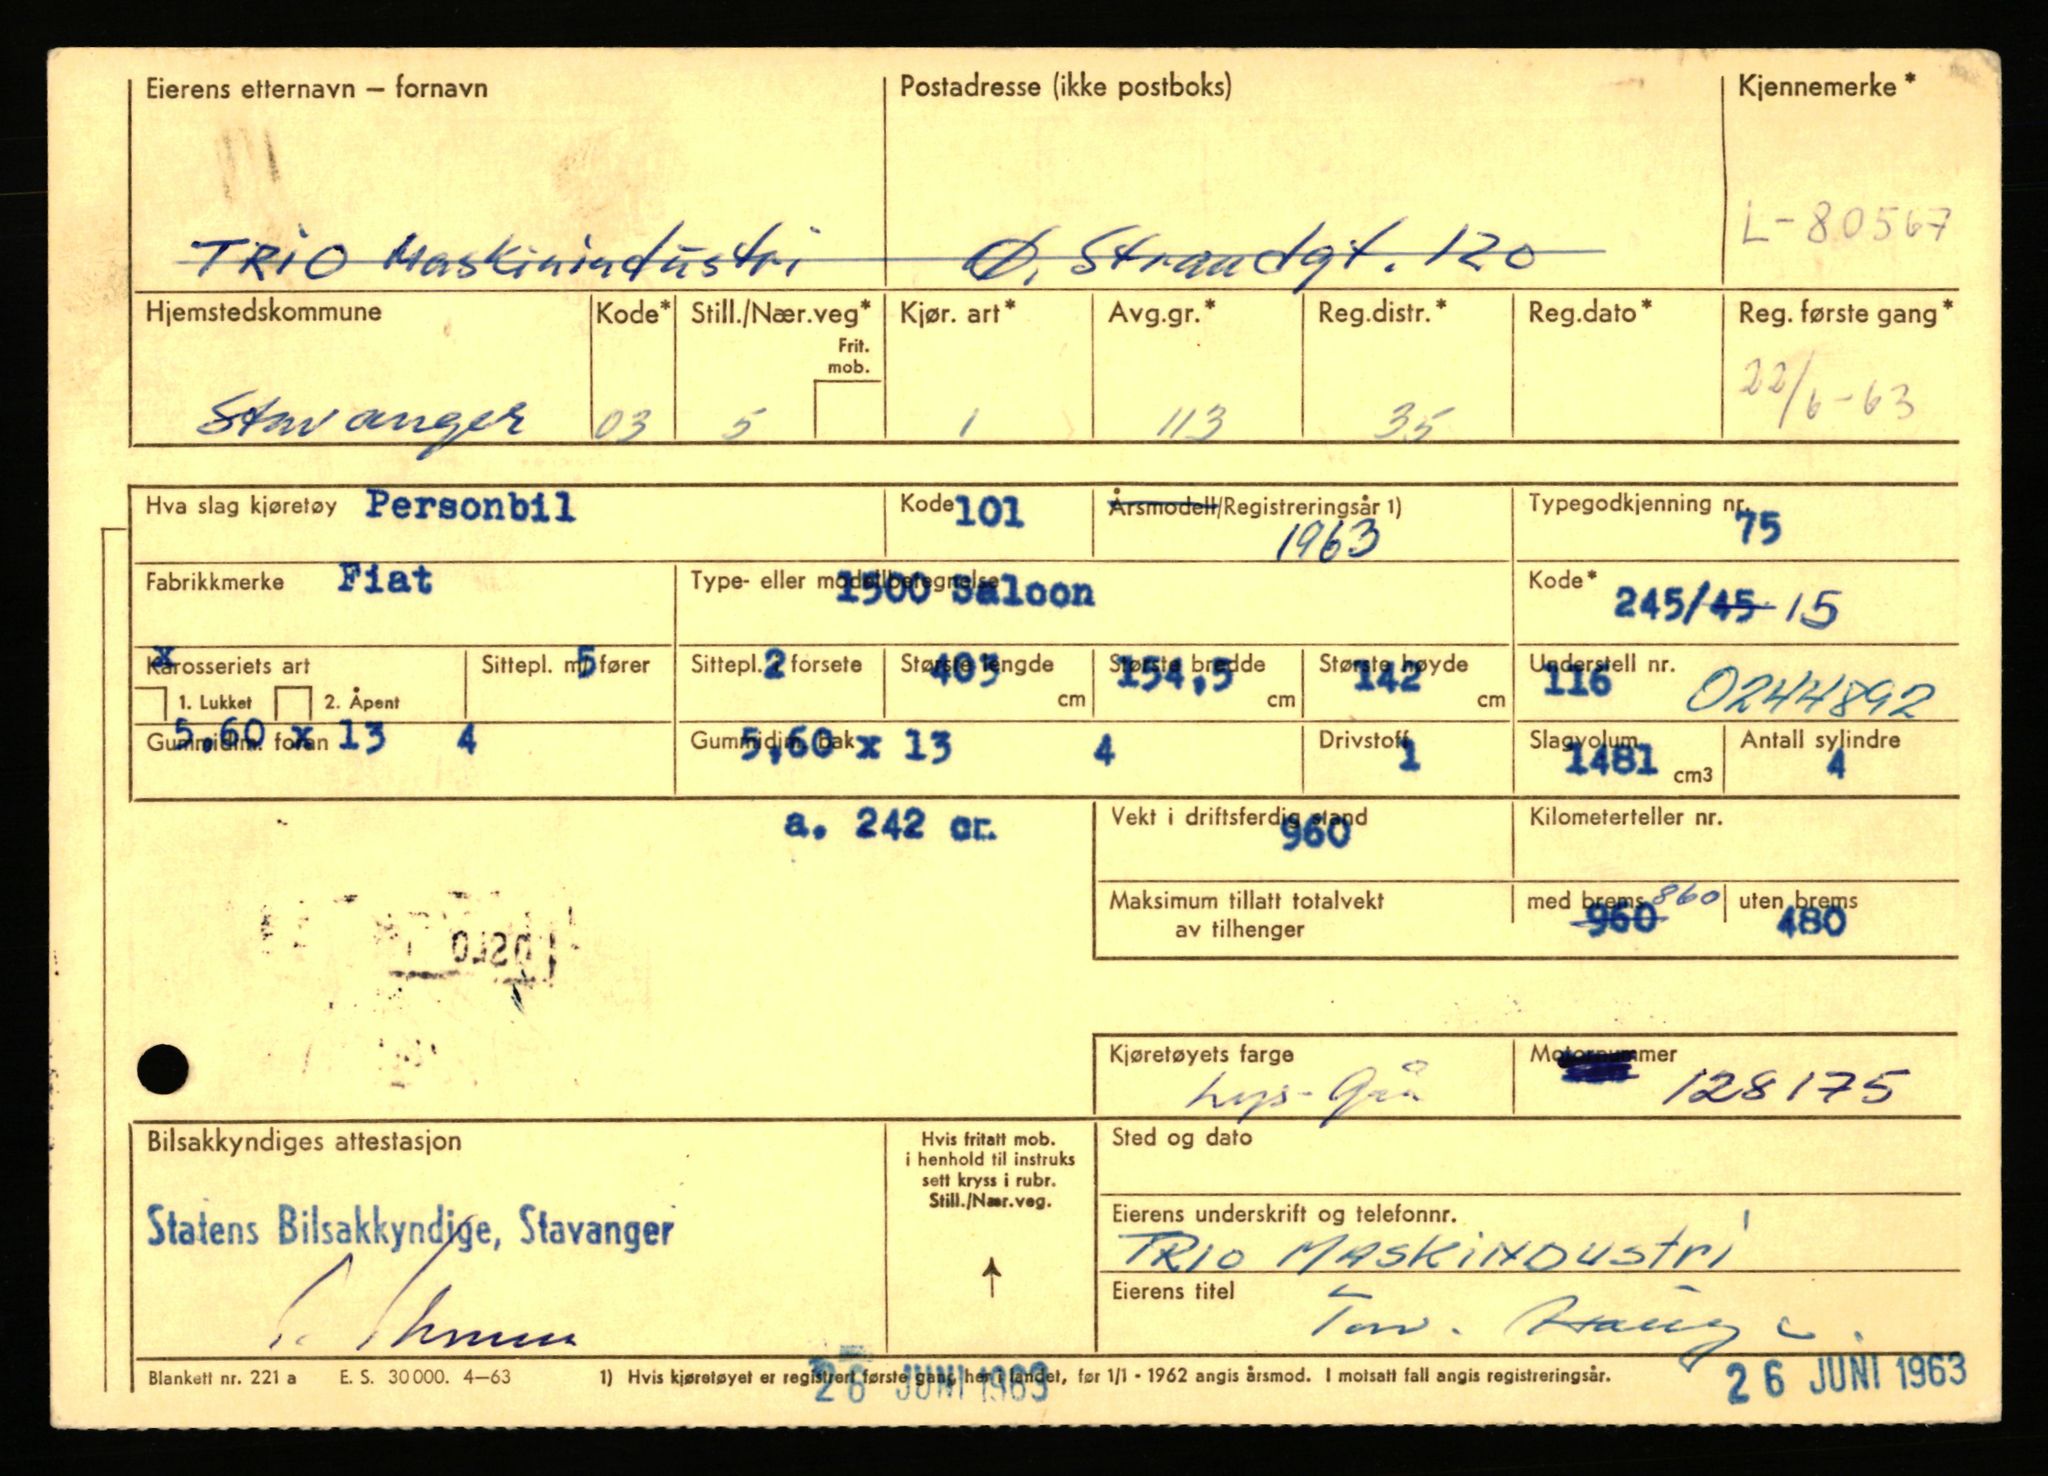 Eierens etternavn – fornavn
Postadresse (ikke postboks)
Kjennemerke*
L-80567
TRIO Maskinindustri
Ø. Strandgt. 120
Hjemstedskommune
Kode*
Still./Nær.veg*
Frit.
mob.
Kjør. art*
Avg.gr.*
Reg.distr.*
Reg.dato*
Reg. første gang*
Stavanger
03
5
1
113
35
22/6-63
Hva slag kjøretøy Personbil
Kode 101
Årsmodell/Registreringsår 1)
1963
Typegodkjenning nr.
75
Fabrikkmerke Fiat
Type- eller modellbetegnelse
1500 Saloon
Kode*
245/45 15
x
Karosseriets art
1. Lukket 2. Åpent
Sittepl. m/fører
5
Sittepl. i forsete
2
Største lengde
403 cm
Største bredde
154,5 cm
Største høyde
142 cm
Understell nr.
116 0244892
Gummidim. foran
5,60 x 13 4
Gummidim. bak
5,60 x 13 4
Drivstoff
1
Slagvolum
1481 cm3
Antall sylindre
4
a. 242 cr.
Vekt i driftsferdig stand
960
Kilometerteller nr.
Maksimum tillatt totalvekt
av tilhenger
med brems 860
960
uten brems
480
OSLO
Kjøretøyets farge
Lys-Grå
Motornummer
128175
Bilsakkyndiges attestasjon
Hvis fritatt mob.
i henhold til instruks
sett kryss i rubr.
Still./Nær.veg.
Sted og dato
Statens Bilsakkyndige, Stavanger
Eierens underskrift og telefonnr.
TRIO MASKINDUSTRI
Eierens titel
Blankett nr. 221 a E. S. 30 000. 4–63
1) Hvis kjøretøyet er registrert første gang her i landet, før 1/1 - 1962 angis årsmod. I motsatt fall angis registreringsår.
26 JUNI 1963
26 JUNI 1963